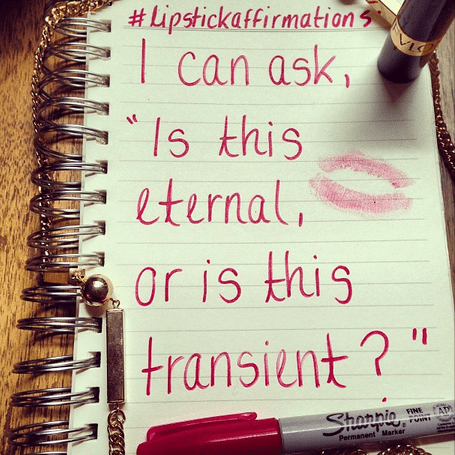 #Lipstickaffirmations
I can ask,
"Is this
eternal,
or is this
transient?"
Sharpie FINE POINT
Permanent Marker